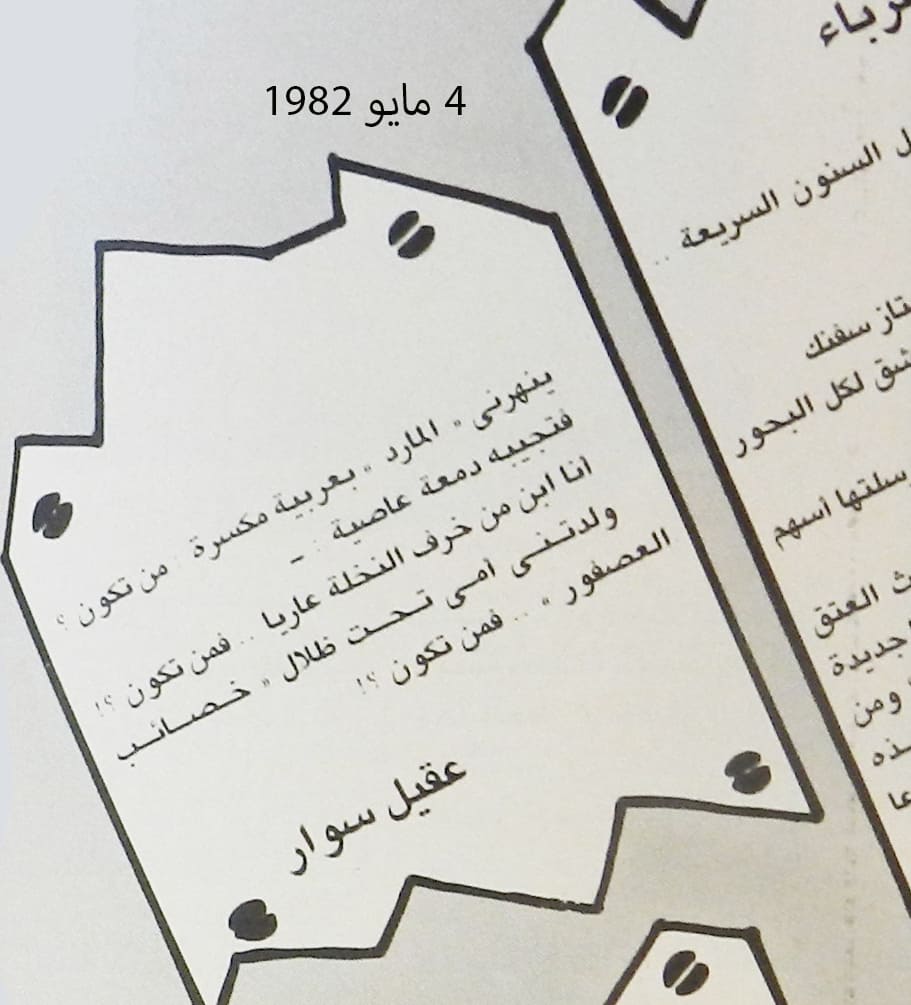 4 مايو 1982
ينهرنى « المارد » بعربية مكسرة : من تكون ؟
فتجيبه دمعة عاصية : –
أنا ابن من خرف النخلة عاريا .. فمن تكون ؟!
ولدتنى أمى تحت ظلال « خصائب
العصفور » .. فمن تكون ؟!
عقيل سوار
السنون السريعة ..
سفنك
لكل البحور
سلتها أسهم
العتق
جديدة
ومن